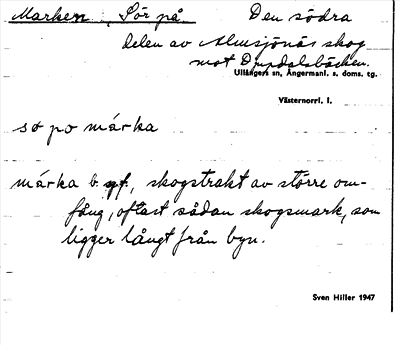 Marken, Sör på Den södra
delen av Almsjönäs skog
mot Djupdalsbäcken.
Ullångers sn, Ångermanl. s. doms. tg.
Västernorrl. l.
sø po márka
márka b. sgf., skogstrakt av större om-
fång, oftast sådan skogsmark, som
ligger långt från byn.
Sven Hiller 1947